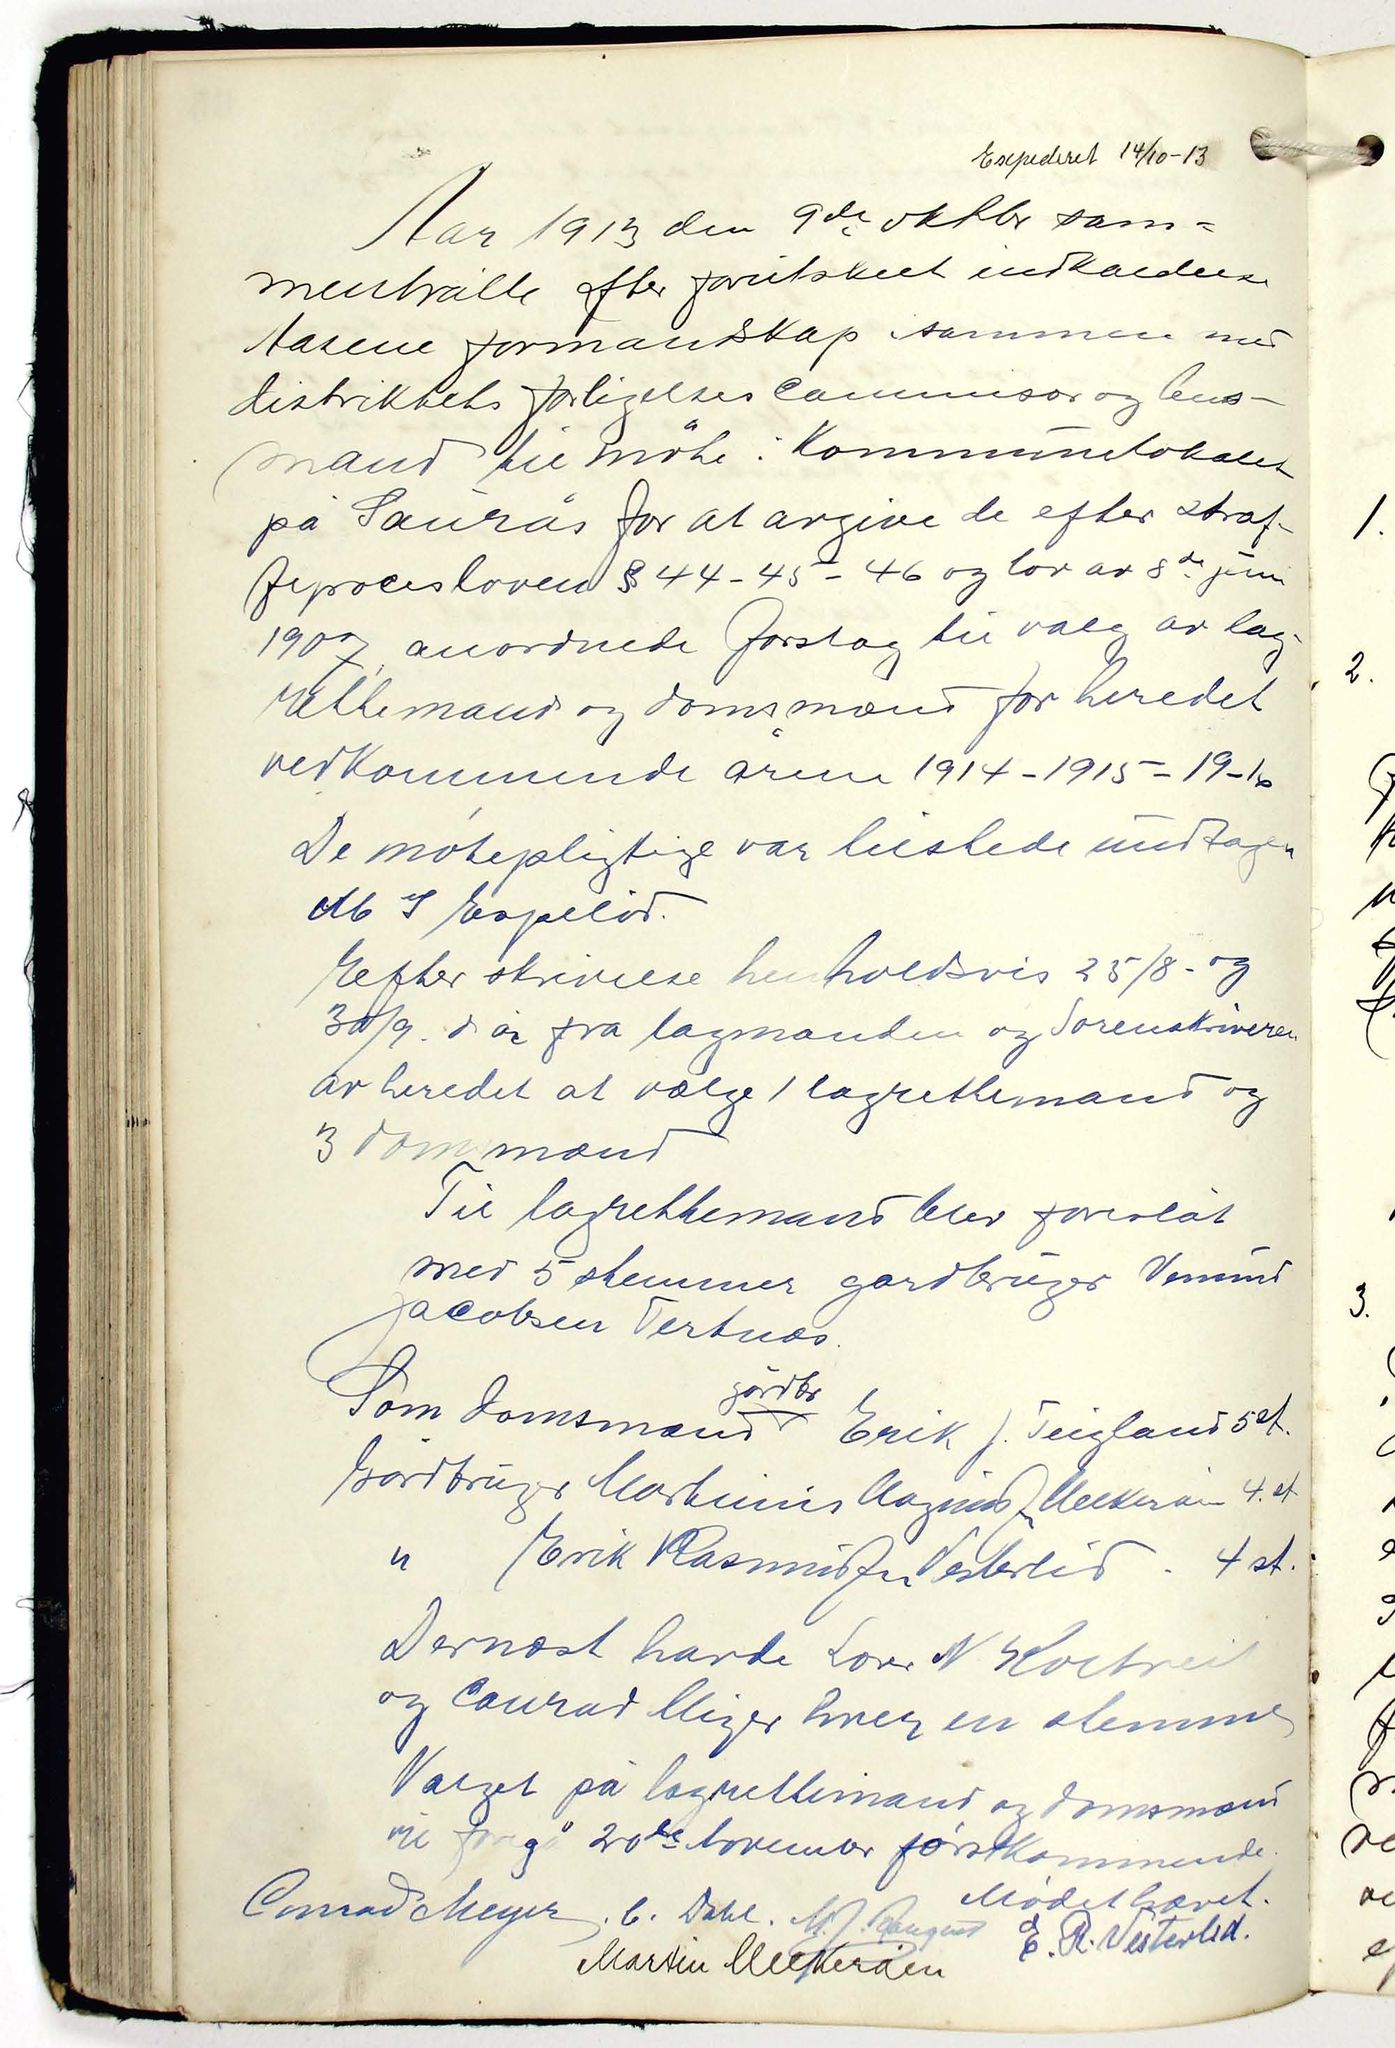 Exepederet 14/10-13
Aar 1913 den 9de oktbr sam=
mentraatte efter forutskeet indkaldelse
Aasene formandskap sammen med
distriktets forligelses Commisær og lens-
mand til møte i Kommunelokalet
på Saurås for at avgive de efter straf-
feprocesloven § 44-45-46 og lov av 8de juni
1907 anordnede forslag til valg av lag-
rettemænd og domsmænd for heredet
vedkommende årene 1914-1915-19-16
De møtepligtige var tilstede undtagen
M S Espelid.
Efter skrivelse henholdsvis 25/8- og
30/9. d år fra lagmanden og Sorenskriveren
av heredet at vælge 1 lagrettemand og
3 dommænd
Til lagrettemand blev foreslåt
med 5 stemmer gardbruger
Jacobsen Tertnæs.
Som domsmænd gårdbr Erik J. Teigland 5 st.
Gårdbruger Martinus Magnus Mykeråen 4. st
" Erik Rasmusen Vesterlid. 4 st.
Dernæst havde N
og Conrad Meyer hver en stemme
Valget på lagrettemand og domsmænd
vil foregå 20de November førstkommende.
Mødet hævet.
Conrad Meyer. C. Dahl. M. J. E. R. Vesterlid.
Martin Mykeråen